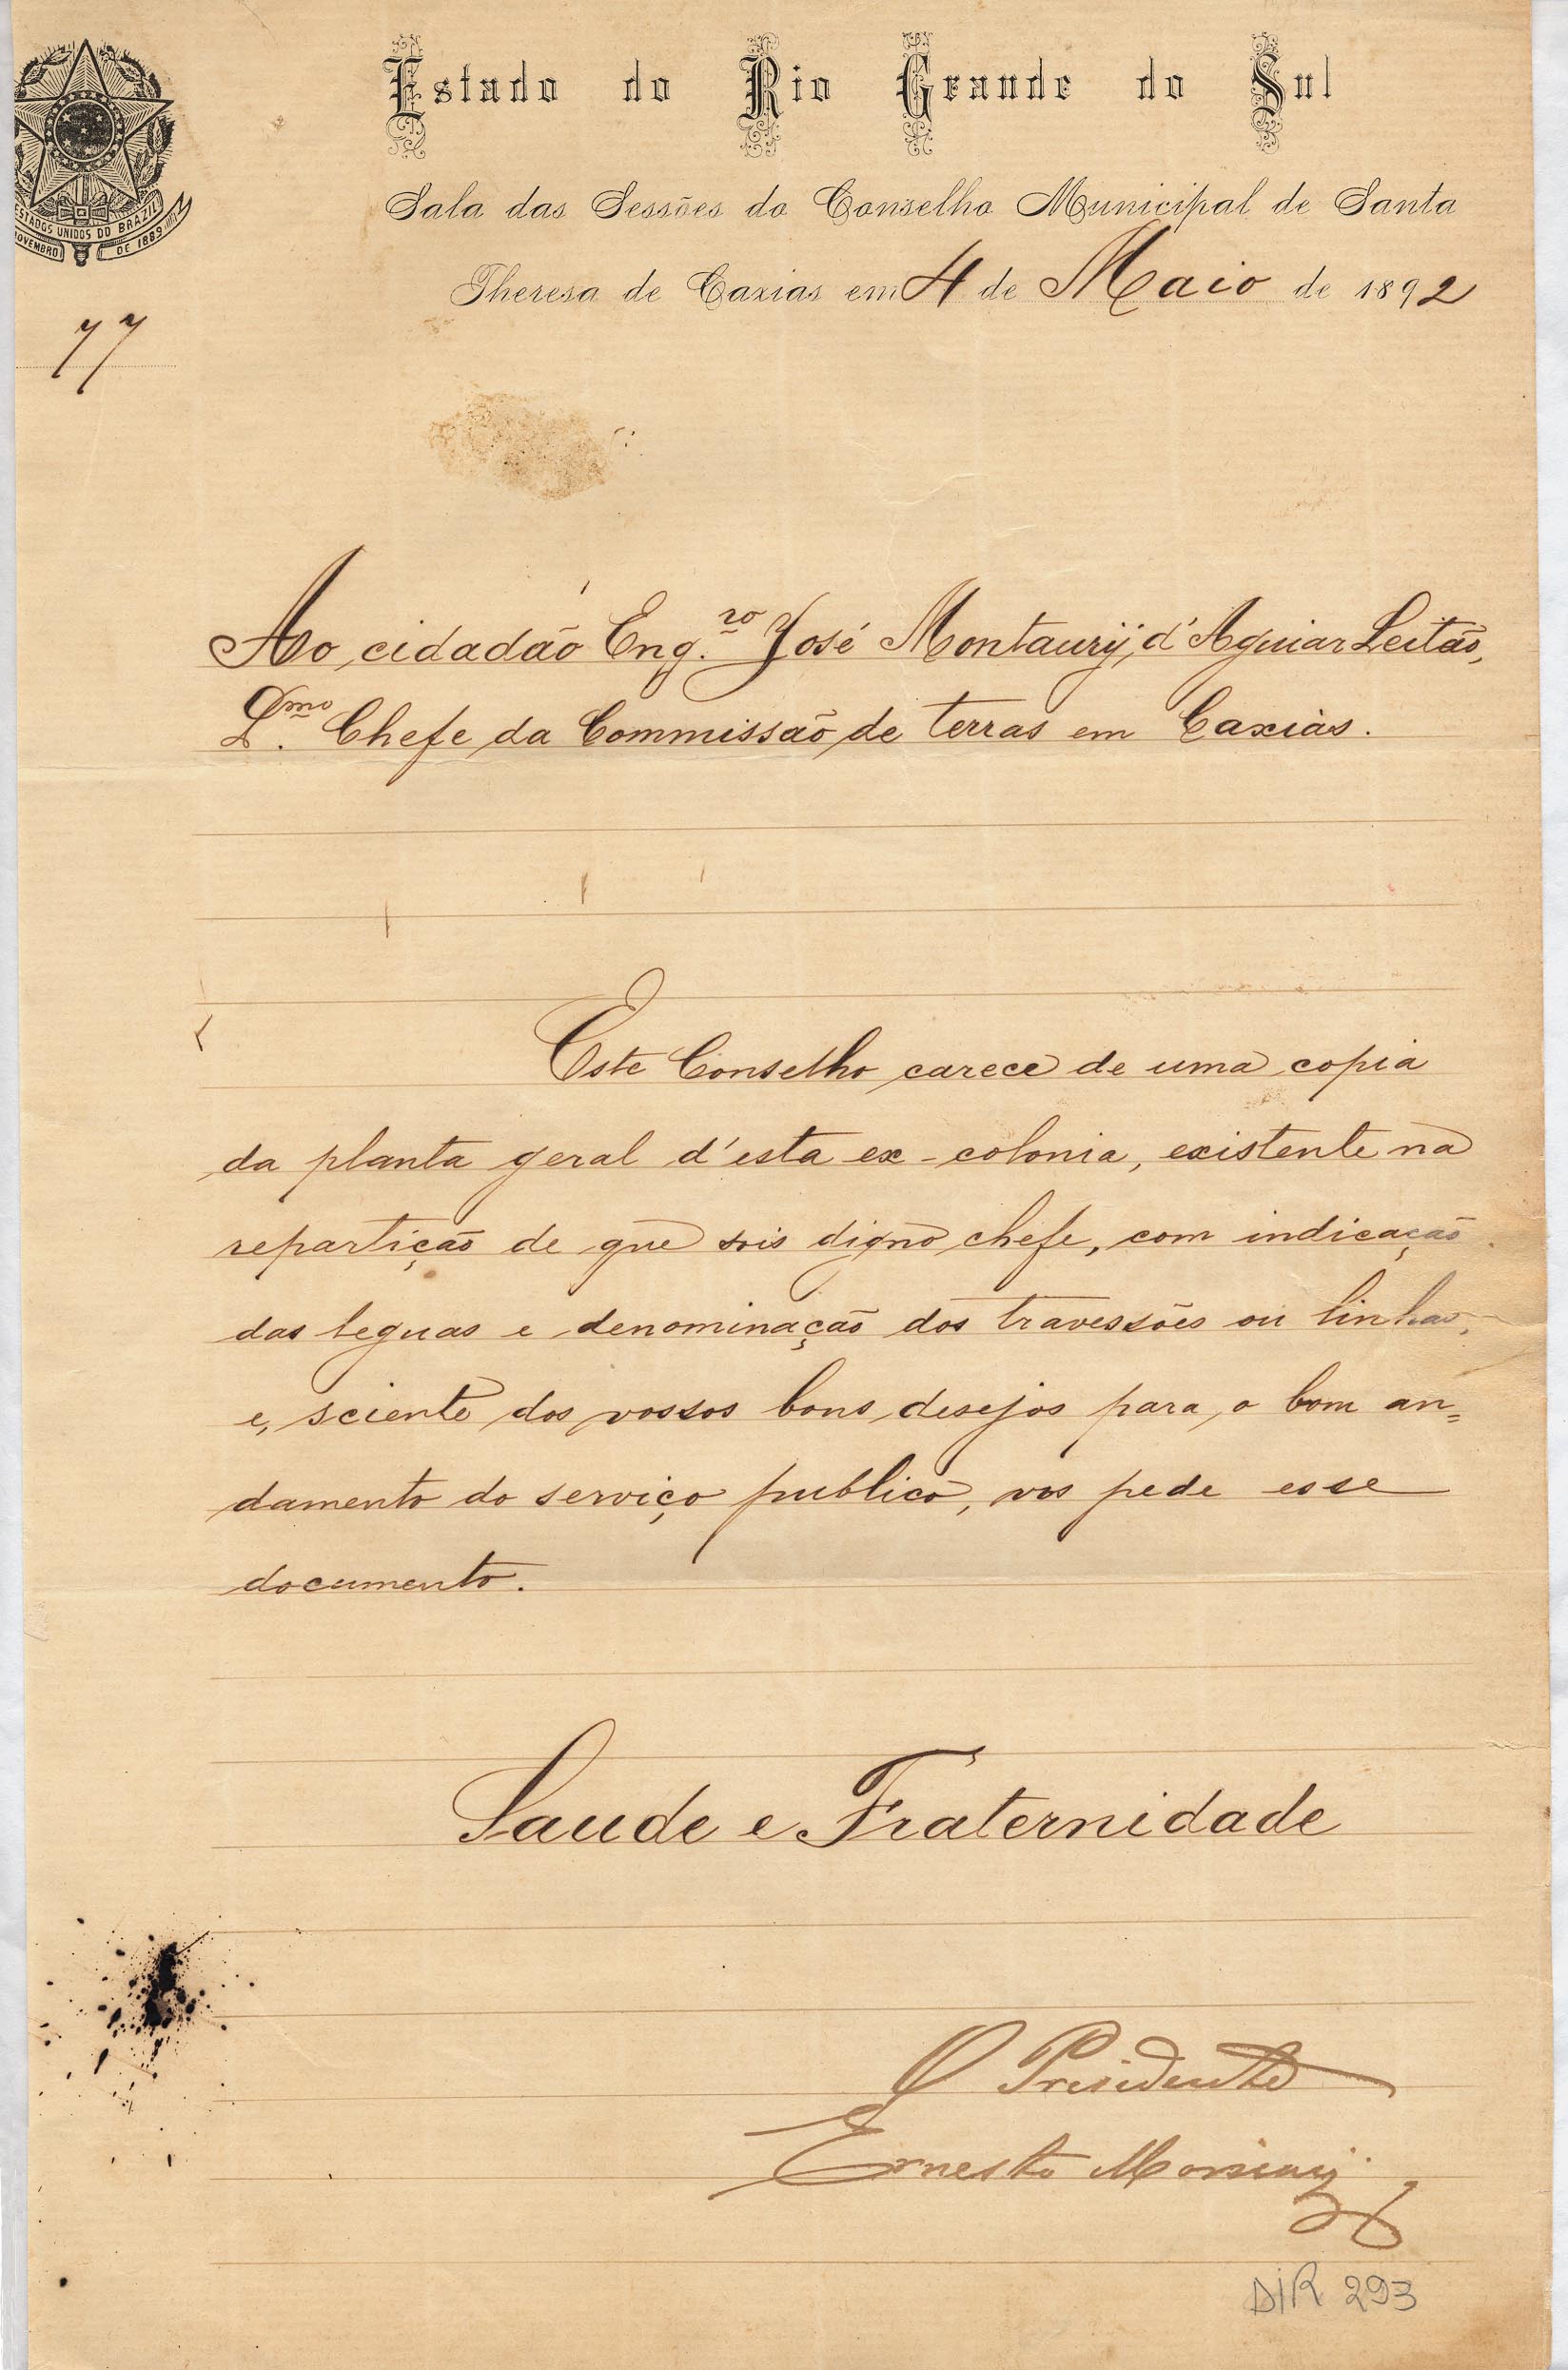 Estado do Rio Grande do Sul
ESTADOS UNIDOS DO BRAZIL
NOVEMBRO DE 1889
Sala das Sessões do Conselho Municipal de Santa
Theresa de Caxias em 4 de Maio de 1892
77
Ao cidadão Eng.ro José Montaurÿ d'Aguiar Leitão,
D.mo Chefe da Commissão de terras em Caxias.
Este Conselho carece de uma copia
da planta geral d'esta ex-colonia, existente na
repartição de que sois digno chefe, com indicação
das leguas e denominação dos travessões ou linhas,
e, sciente dos vossos bons desejos para o bom an=
damento do serviço publico, vos pede esse
documento.
Saude e Fraternidade
O Presidente
Ernesto
DIR 293